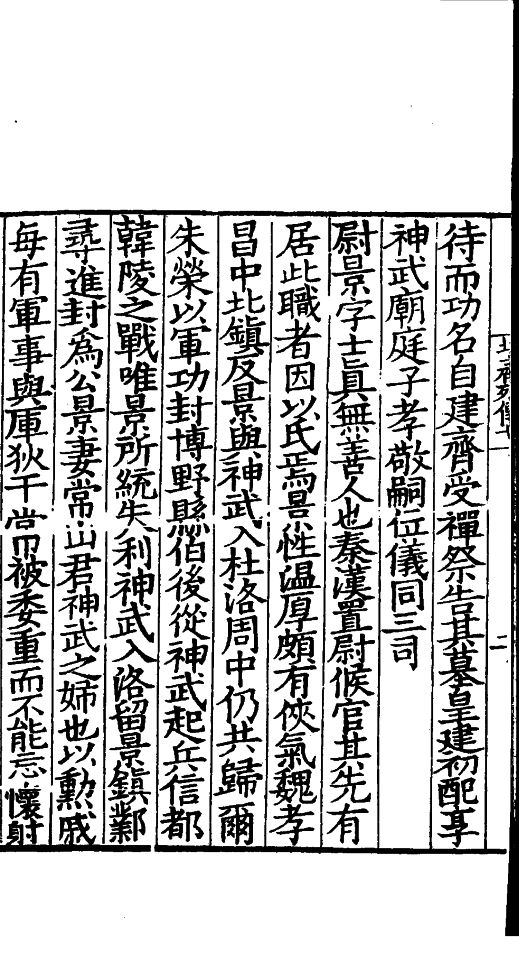 待而功名自建齊受禪祭告其墓皇建初配享
神武廟庭子孝敬嗣位儀同三司
尉景字士真無善人也秦漢置尉候官其先有
居此職者因以氏焉景性温厚頗有俠氣魏孝
昌中北鎮反景與神武入杜洛周中仍共歸爾
朱榮以軍功封博野縣伯後從神武起兵信都
韓陵之戰唯景所統失利神武入洛留景鎮鄴
尋進封為公景妻常山君神武之姉也以勲戚
每有軍事與厙狄干常被委重而不能忘懷射
二